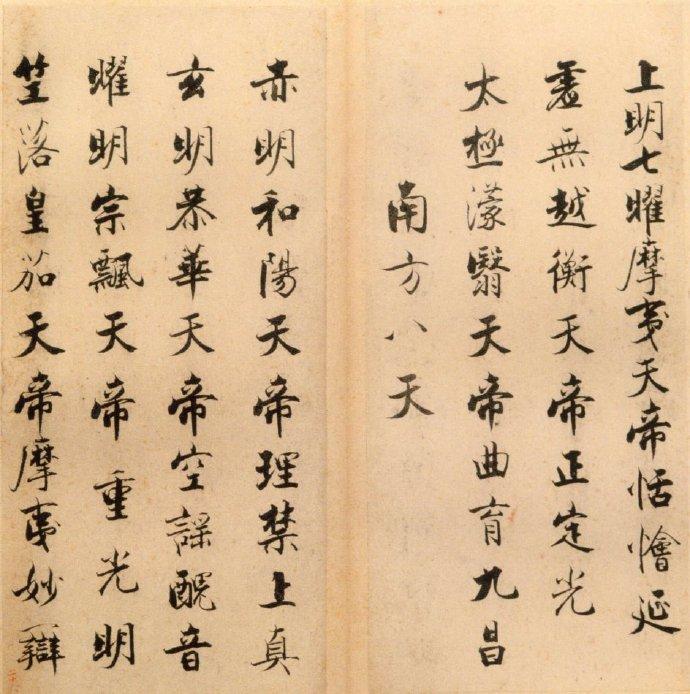 上明七曜摩夷天帝恬懀延
虛無越衡天帝正定光
太極濛翳天帝曲育九昌
南方八天
赤明和陽天帝理禁上真
玄明恭華天帝空謠醜音
曜明宗飄天帝重光明
竺落皇茄天帝摩夷妙辯